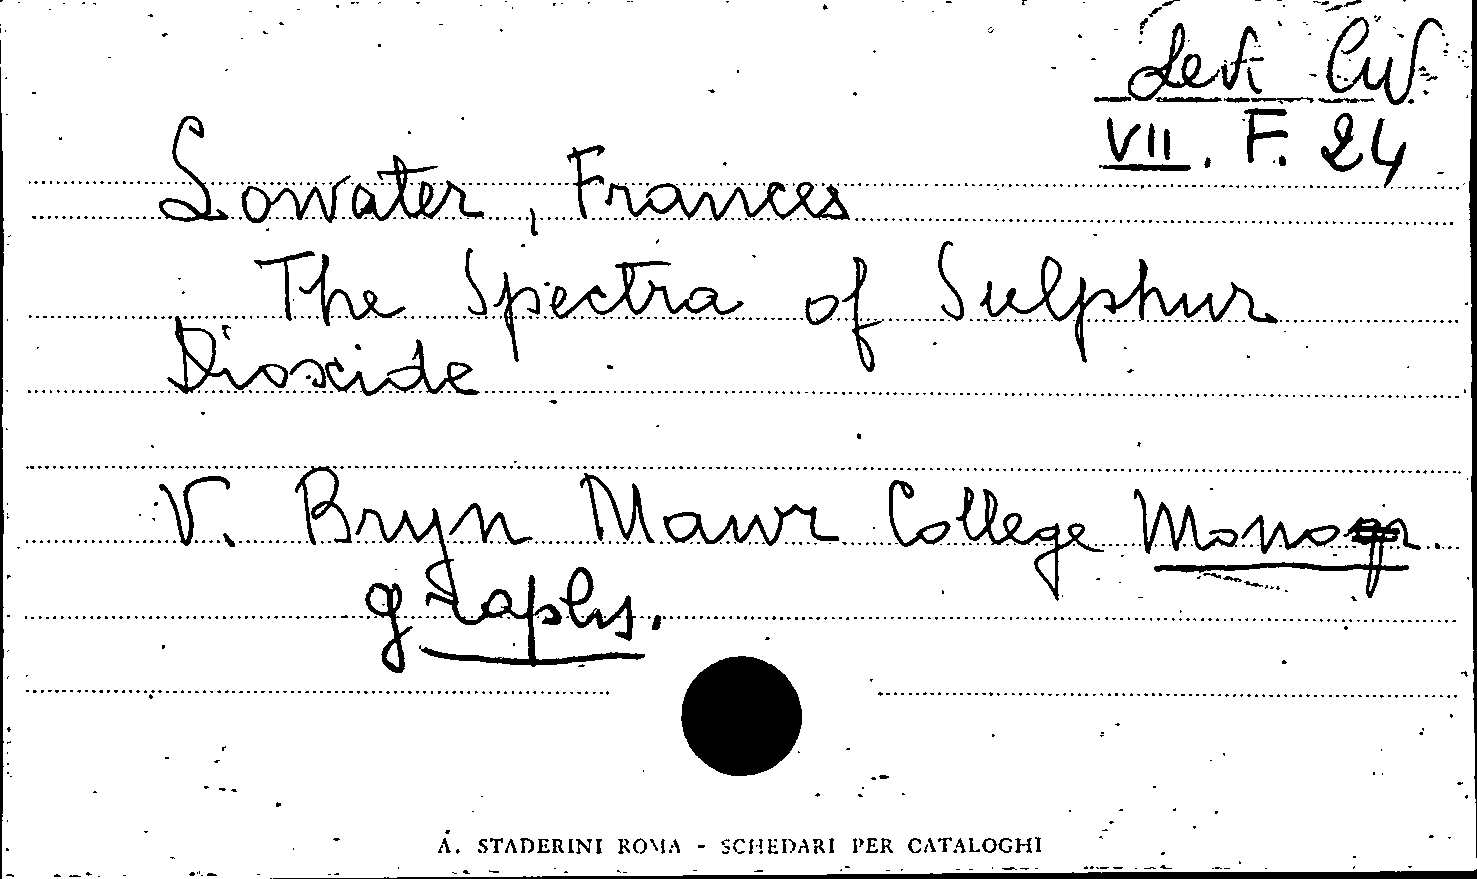 Lett. Civ.
VII. F. 24
Lowater, Frances
The Spectra of Sulphur
Dioxide
V. Bryn Mawr College Mono
graphs.
A. STADERINI ROMA - SCHEDARI PER CATALOGHI